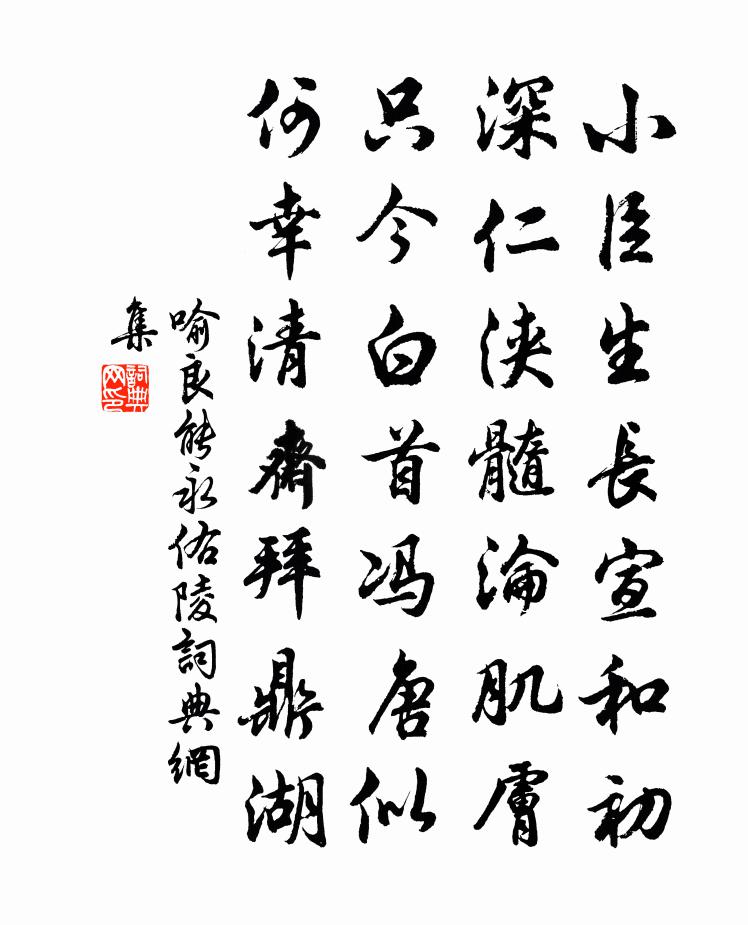 小臣生長宣和初
深仁浹髓淪肌膚
只今白首冯唐似
何幸清齋拜鼎湖
喻良能永佑陵詞典網
集
詞典
网印